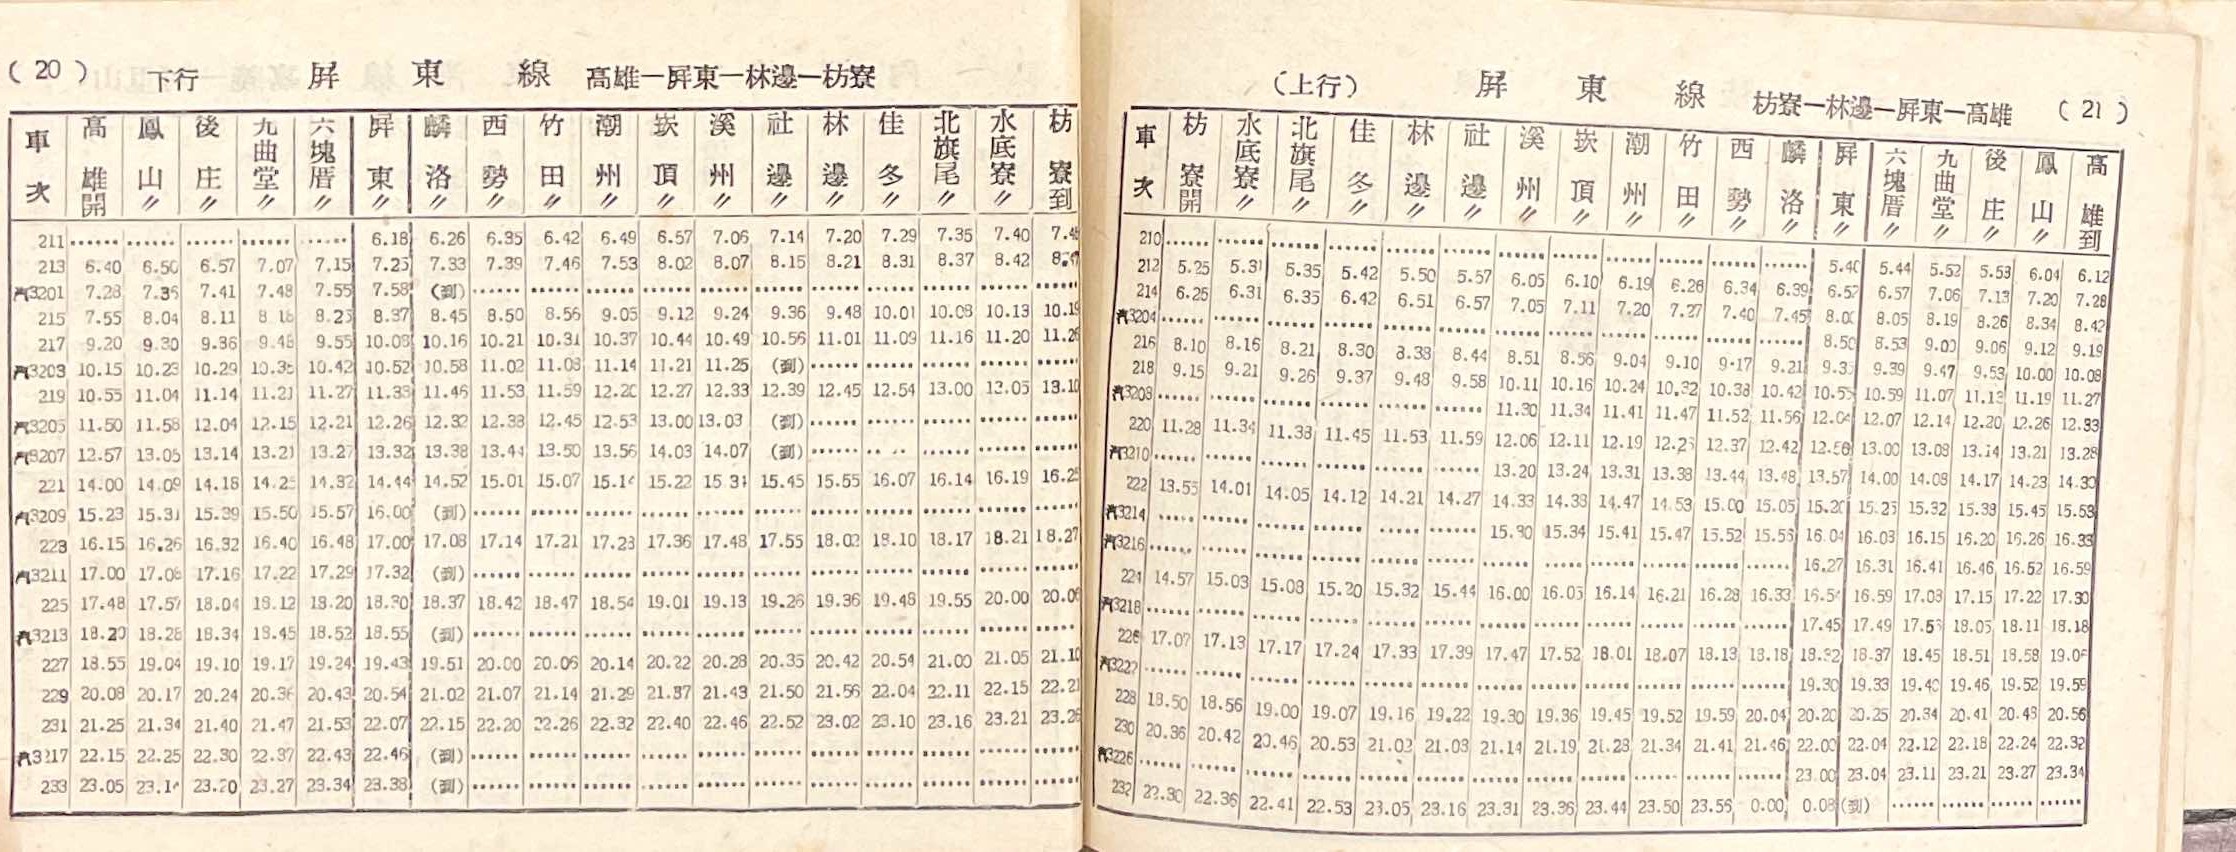 ( 20 ) 下行 屏東線 高雄—屏東—林邊—枋寮
車次 高雄開 鳳山〃 後庄〃 九曲堂〃 六塊厝〃 屏東〃 麟洛〃 西勢〃 竹田〃 潮州〃 崁頂〃 溪州〃 社邊〃 林邊〃 佳冬〃 北旗尾〃 水底寮〃 枋寮到
211 …… …… …… …… …… 6.18 6.26 6.35 6.42 6.49 6.57 7.06 7.14 7.20 7.29 7.35 7.40
213 6.40 6.50 6.57 7.07 7.15 7.25 7.33 7.39 7.46 7.53 8.02 8.07 8.15 8.21 8.31 8.37 8.42
汽3201 7.28 7.36 7.41 7.48 7.55 7.58 (到) …… …… …… …… …… …… …… …… …… …… ……
215 7.55 8.04 8.11 8.18 8.25 8.37 8.45 8.50 8.56 9.05 9.12 9.24 9.36 9.48 10.01 10.08 10.13 10.19
217 9.20 9.30 9.36 9.48 9.55 10.08 10.16 10.21 10.31 10.37 10.44 10.49 10.56 11.01 11.09 11.16 11.20 11.26
汽3203 10.15 10.23 10.29 10.36 10.42 10.52 10.58 11.02 11.08 11.14 11.21 11.25 (到) …… …… …… …… ……
219 10.55 11.04 11.14 11.21 11.27 11.38 11.46 11.53 11.59 12.20 12.27 12.33 12.39 12.45 12.54 13.00 13.05 13.10
汽3205 11.50 11.58 12.04 12.15 12.21 12.26 12.32 12.38 12.45 12.53 13.00 13.03 (到) …… …… …… …… ……
汽3207 12.57 13.05 13.14 13.21 13.27 13.32 13.38 13.44 13.50 13.56 14.03 14.07 (到) …… …… …… …… ……
221 14.00 14.09 14.18 14.25 14.32 14.44 14.52 15.01 15.07 15.14 15.22 15.31 15.45 15.55 16.07 16.14 16.19 16.25
汽3209 15.23 15.31 15.39 15.50 15.57 16.00 (到) …… …… …… …… …… …… …… …… …… …… ……
223 16.15 16.26 16.32 16.40 16.48 17.00 17.08 17.14 17.21 17.28 17.36 17.48 17.55 18.02 18.10 18.17 18.21 18.27
汽3211 17.00 17.08 17.16 17.22 17.29 17.32 (到) …… …… …… …… …… …… …… …… …… …… ……
225 17.48 17.57 18.04 18.12 18.20 18.30 18.37 18.42 18.47 18.54 19.01 19.13 19.26 19.36 19.48 19.55 20.00 20.06
汽3213 18.20 18.28 18.34 18.45 18.52 18.55 (到) …… …… …… …… …… …… …… …… …… …… ……
227 18.55 19.04 19.10 19.17 19.24 19.43 19.51 20.00 20.06 20.14 20.22 20.28 20.35 20.42 20.54 21.00 21.05 21.10
229 20.08 20.17 20.24 20.36 20.43 20.54 21.02 21.07 21.14 21.29 21.37 21.43 21.50 21.56 22.04 22.11 22.15 22.21
231 21.25 21.34 21.40 21.47 21.53 22.07 22.15 22.20 22.26 22.32 22.40 22.46 22.52 23.02 23.10 23.16 23.21 23.26
汽3217 22.15 22.25 22.30 22.37 22.43 22.46 (到) …… …… …… …… …… …… …… …… …… …… ……
233 23.05 23.14 23.20 23.27 23.34 23.38 (到) …… …… …… …… …… …… …… …… …… …… ……
(上行) 屏東線 枋寮—林邊—屏東—高雄 ( 21 )
車次 枋寮開 水底寮〃 北旗尾〃 佳冬〃 林邊〃 社邊〃 溪州〃 崁頂〃 潮州〃 竹田〃 西勢〃 麟洛〃 屏東〃 六塊厝〃 九曲堂〃 後庄〃 鳳山〃 高雄到
210 …… …… …… …… …… …… …… …… …… …… …… …… 5.40 5.44 5.52 5.58 6.04 6.12
212 5.25 5.31 5.35 5.42 5.50 5.57 6.05 6.10 6.19 6.26 6.34 6.39 6.52 6.57 7.06 7.13 7.20 7.28
214 6.25 6.31 6.35 6.42 6.51 6.57 7.05 7.11 7.20 7.27 7.40 7.45 8.00 8.05 8.19 8.26 8.34 8.42
汽3204 …… …… …… …… …… …… …… …… …… …… …… …… 8.50 8.53 9.00 9.06 9.12 9.19
216 8.10 8.16 8.21 8.30 8.38 8.44 8.51 8.56 9.04 9.10 9.17 9.21 9.35 9.39 9.47 9.53 10.00 10.08
218 9.15 9.21 9.26 9.37 9.48 9.58 10.11 10.16 10.24 10.32 10.38 10.42 10.55 10.59 11.07 11.13 11.19 11.27
汽3208 …… …… …… …… …… …… 11.30 11.34 11.41 11.47 11.52 11.56 12.04 12.07 12.14 12.20 12.26 12.33
220 11.28 11.34 11.38 11.45 11.53 11.59 12.06 12.11 12.19 12.25 12.37 12.42 12.56 13.00 13.08 13.14 13.21 13.28
汽3210 …… …… …… …… …… …… 13.20 13.24 13.31 13.38 13.44 13.48 13.57 14.00 14.08 14.17 14.23 14.30
222 13.55 14.01 14.05 14.12 14.21 14.27 14.33 14.38 14.47 14.53 15.00 15.05 15.20 15.25 15.32 15.38 15.45 15.53
汽3214 …… …… …… …… …… …… 15.30 15.34 15.41 15.47 15.52 15.56 16.04 16.08 16.15 16.20 16.26 16.33
汽3216 …… …… …… …… …… …… …… …… …… …… …… …… 16.27 16.31 16.41 16.46 16.52 16.59
224 14.57 15.03 15.08 15.20 15.32 15.44 16.00 16.05 16.14 16.21 16.28 16.33 16.54 16.59 17.08 17.15 17.22 17.30
汽3218 …… …… …… …… …… …… …… …… …… …… …… …… 17.45 17.49 17.58 18.05 18.11 18.18
226 17.07 17.13 17.17 17.24 17.33 17.39 17.47 17.52 18.01 18.07 18.13 18.18 18.32 18.37 18.45 18.51 18.58 19.06
汽3222 …… …… …… …… …… …… …… …… …… …… …… …… 19.30 19.33 19.40 19.46 19.52 19.59
228 18.50 18.56 19.00 19.07 19.16 19.22 19.30 19.36 19.45 19.52 19.59 20.04 20.20 20.25 20.34 20.41 20.48 20.56
230 20.36 20.42 20.46 20.53 21.02 21.08 21.14 21.19 21.28 21.34 21.41 21.46 22.00 22.04 22.12 22.18 22.24 22.32
汽3226 …… …… …… …… …… …… …… …… …… …… …… …… 23.00 23.04 23.11 23.21 23.27 23.34
232 22.30 22.36 22.41 22.53 23.05 23.16 23.31 23.36 23.44 23.50 23.56 0.00 0.08 (到) …… …… …… ……